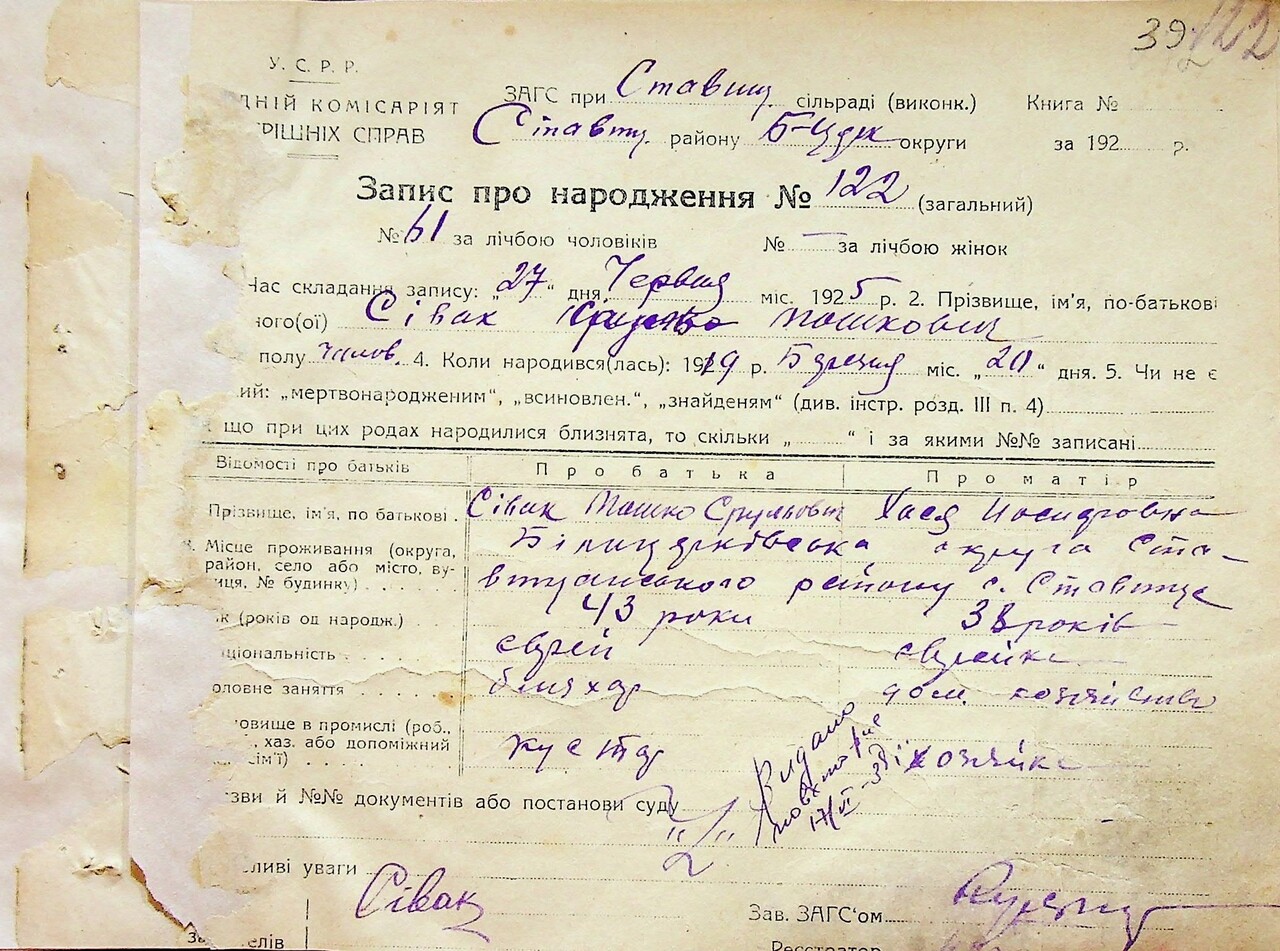 39 122
У. С. Р. Р.
ДНІЙ КОМІСАРІЯТ
РІШНІХ СПРАВ
ЗАГС при Ставищ. сільраді (виконк.) Книга №
Ставищ. району Б-Црк округи за 192 р.
Запис про народження № 122 (загальний)
№ 61 за лічбою чоловіків № — за лічбою жінок
Час складання запису: „27“ дня Червня міс. 1925 р. 2. Прізвище, ім'я, по-батькові
ного(ої) Сівак Мошкович
полу чолов. 4. Коли народився(лась): 1919 р. Березня міс. „20“ дня. 5. Чи не є
ий: „мертвонародженим“, „всиновлен.“, „знайденям“ (див. інстр. розд. III п. 4)
що при цих родах народилися близнята, то скільки „ “ і за якими №№ записані
Відомості про батьків Про батька Про матір
Прізвище, ім'я, по батькові . Сівак Мошко Срулевич Хася Иосиповна
Місце проживання (округа, Білоцерківська округа Ста-
район, село або місто, ву-
иця, № будинку) . . . . вищанського району с. Ставище
к (років од народж.) 43 роки 38 років
ціональність . . . еврей еврейка
оловне заняття . . . . . бляхар дом. хозяйство
овище в промислі (роб.,
, хаз. або допоміжний
сім'ї) . . . . . кустар хозяйка
Видано
17/VI-3
зви й №№ документів або постанови суду
„2“
ливі уваги
Сівак
Зав. ЗАГС'ом
Реєстратор